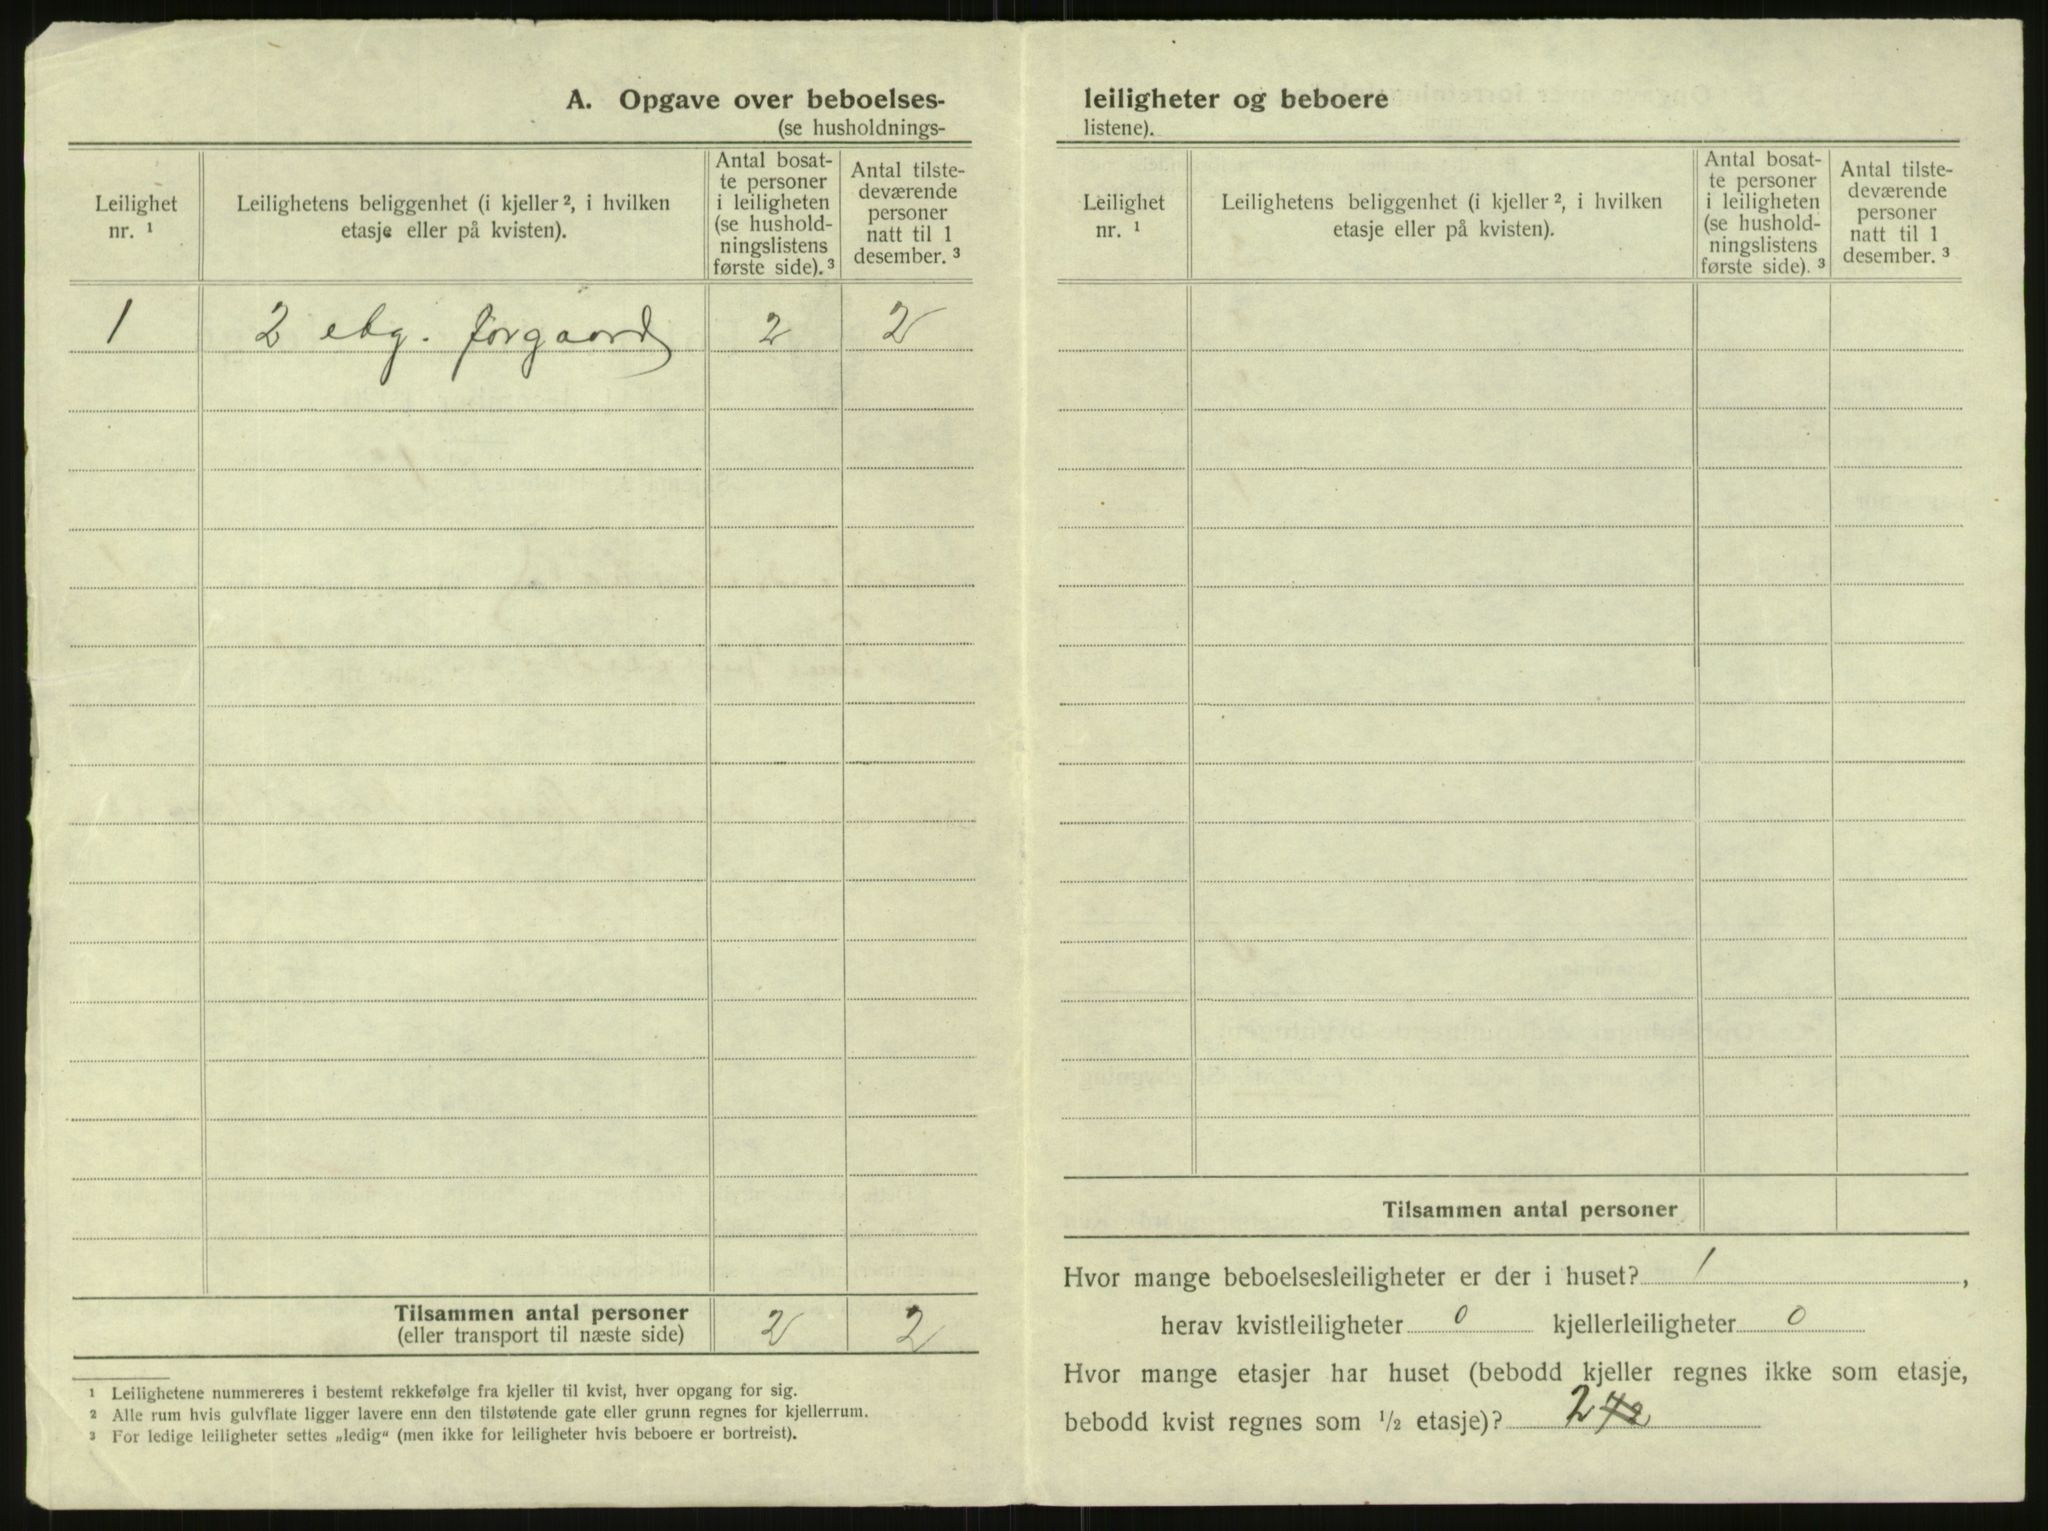 A. Opgave over beboelses-
(se husholdnings-
Leilighet
nr. ¹
Leilighetens beliggenhet (i kjeller ², i hvilken
etasje eller på kvisten).
Antal bosat-
te personer
i leiligheten
(se hushold-
ningslistens
første side). ³
Antal tilste-
deværende
personer
natt til 1
desember. ³
1 2 etg. forgaard 2 2
Tilsammen antal personer
(eller transport til næste side) 2 2
¹ Leilighetene nummereres i bestemt rekkefølge fra kjeller til kvist, hver opgang for sig.
² Alle rum hvis gulvflate ligger lavere enn den tilstøtende gate eller grunn regnes for kjellerrum.
³ For ledige leiligheter settes „ledig“ (men ikke for leiligheter hvis beboere er bortreist).
leiligheter og beboere
listene).
Leilighet
nr. ¹
Leilighetens beliggenhet (i kjeller ², i hvilken
etasje eller på kvisten).
Antal bosat-
te personer
i leiligheten
(se hushold-
ningslistens
første side). ³
Antal tilste-
deværende
personer
natt til 1
desember. ³
Tilsammen antal personer
Hvor mange beboelsesleiligheter er der i huset? 1,
herav kvistleiligheter 0 kjellerleiligheter 0
Hvor mange etasjer har huset (bebodd kjeller regnes ikke som etasje,
bebodd kvist regnes som ½ etasje)? 2